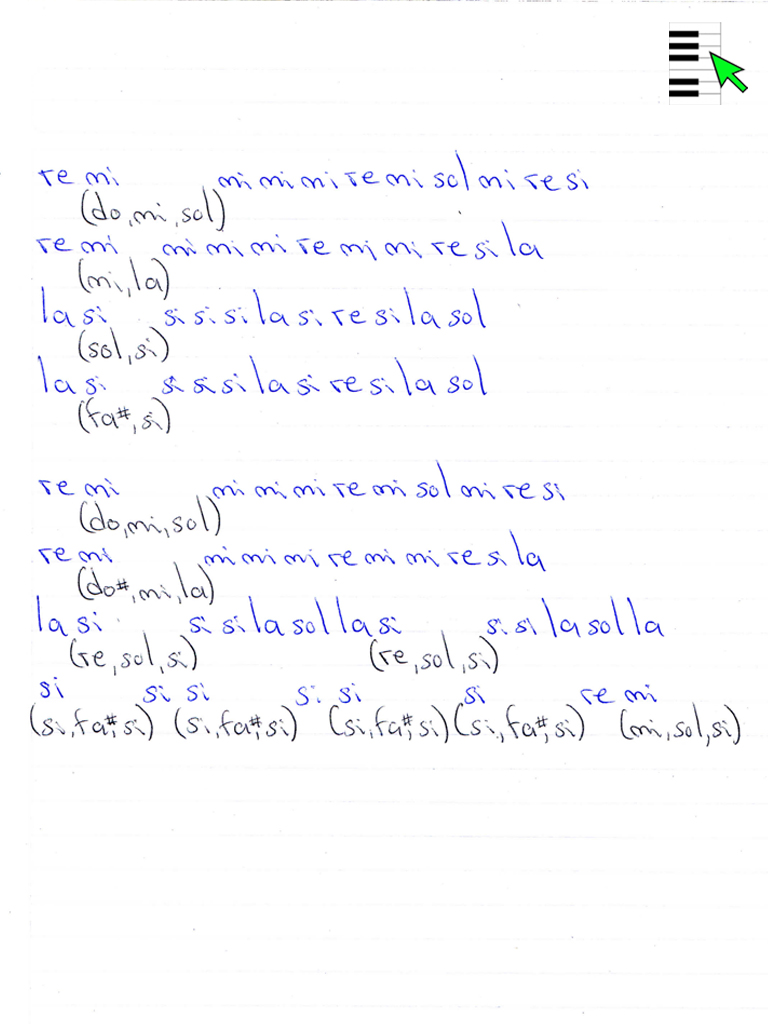 re mi mi mi mi re mi sol mi re si
(do, mi, sol)
re mi mi mi mi re mi mi re si la
(mi, la)
la si si si si la si re si la sol
(sol, si)
la si si si si la si re si la sol
(fa#, si)
re mi mi mi mi re mi sol mi re si
(do, mi, sol)
re mi mi mi mi re mi mi re si la
(do#, mi, la)
la si si si la sol la si si si la sol la
(re, sol, si) (re, sol, si)
si si si si si si re mi
(si, fa#, si) (si, fa#, si) (si, fa#, si) (si, fa#, si) (mi, sol, si)